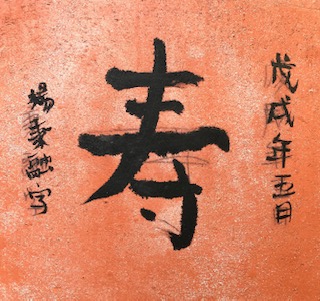 戊戌年五月
寿
楊秉融写